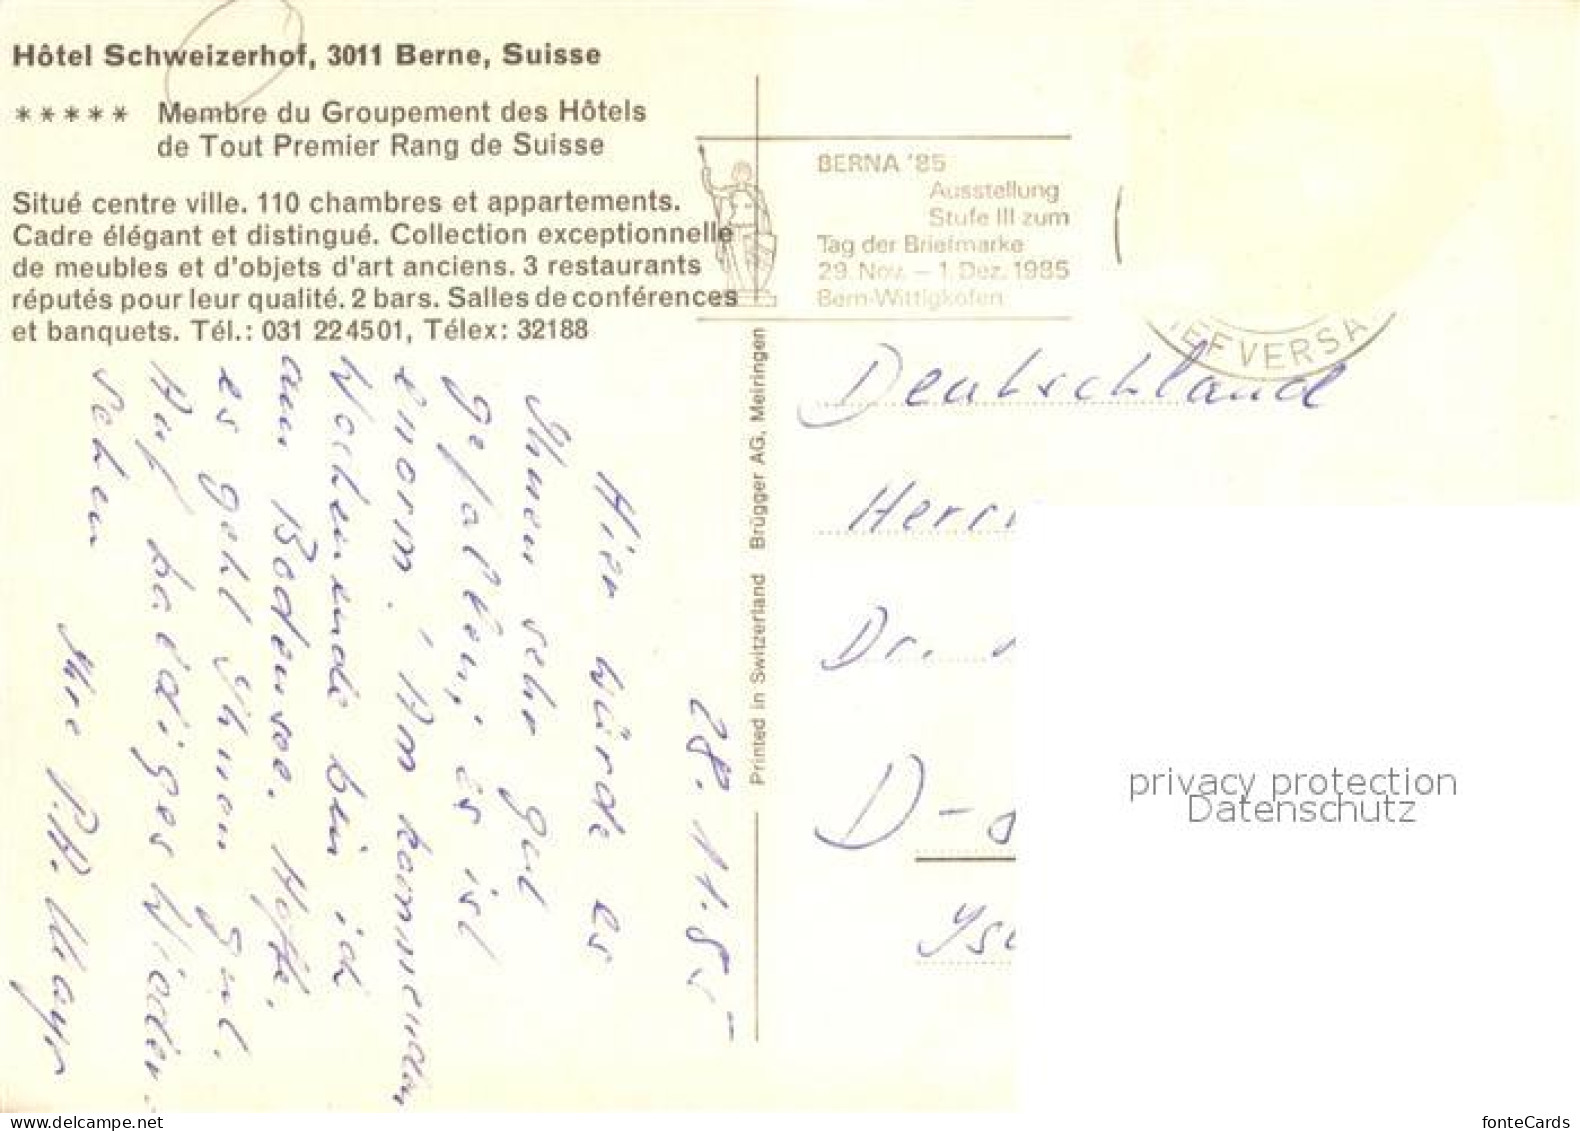 Hôtel Schweizerhof, 3011 Berne, Suisse
***** Membre du Groupement des Hôtels
de Tout Premier Rang de Suisse
Situé centre ville. 110 chambres et appartements.
Cadre élégant et distingué. Collection exceptionnelle
de meubles et d'objets d'art anciens. 3 restaurants
réputés pour leur qualité. 2 bars. Salles de conférences
et banquets. Tél.: 031 224501, Télex: 32188
28.11.85
Hier würde es
Ihnen sehr gut
gefallen; es ist
enorm! Am kommenden
Wochenende bin ich
am Bodensee. Hoffe,
es geht Ihnen gut.
Auf baldiges Wieder-
sehen
Ihre P.H. Mayr
Printed in Switzerland Brügger AG, Meiringen
BERNA '85
Ausstellung
Stufe III zum
Tag der Briefmarke
29. Nov. – 1. Dez. 1985
Bern-Wittigkofen
EFVERSA
Deutschland
Herr
Dr.
D-
privacy protection
Datenschutz
Hotel Schweizerhof Bern
fonteCards